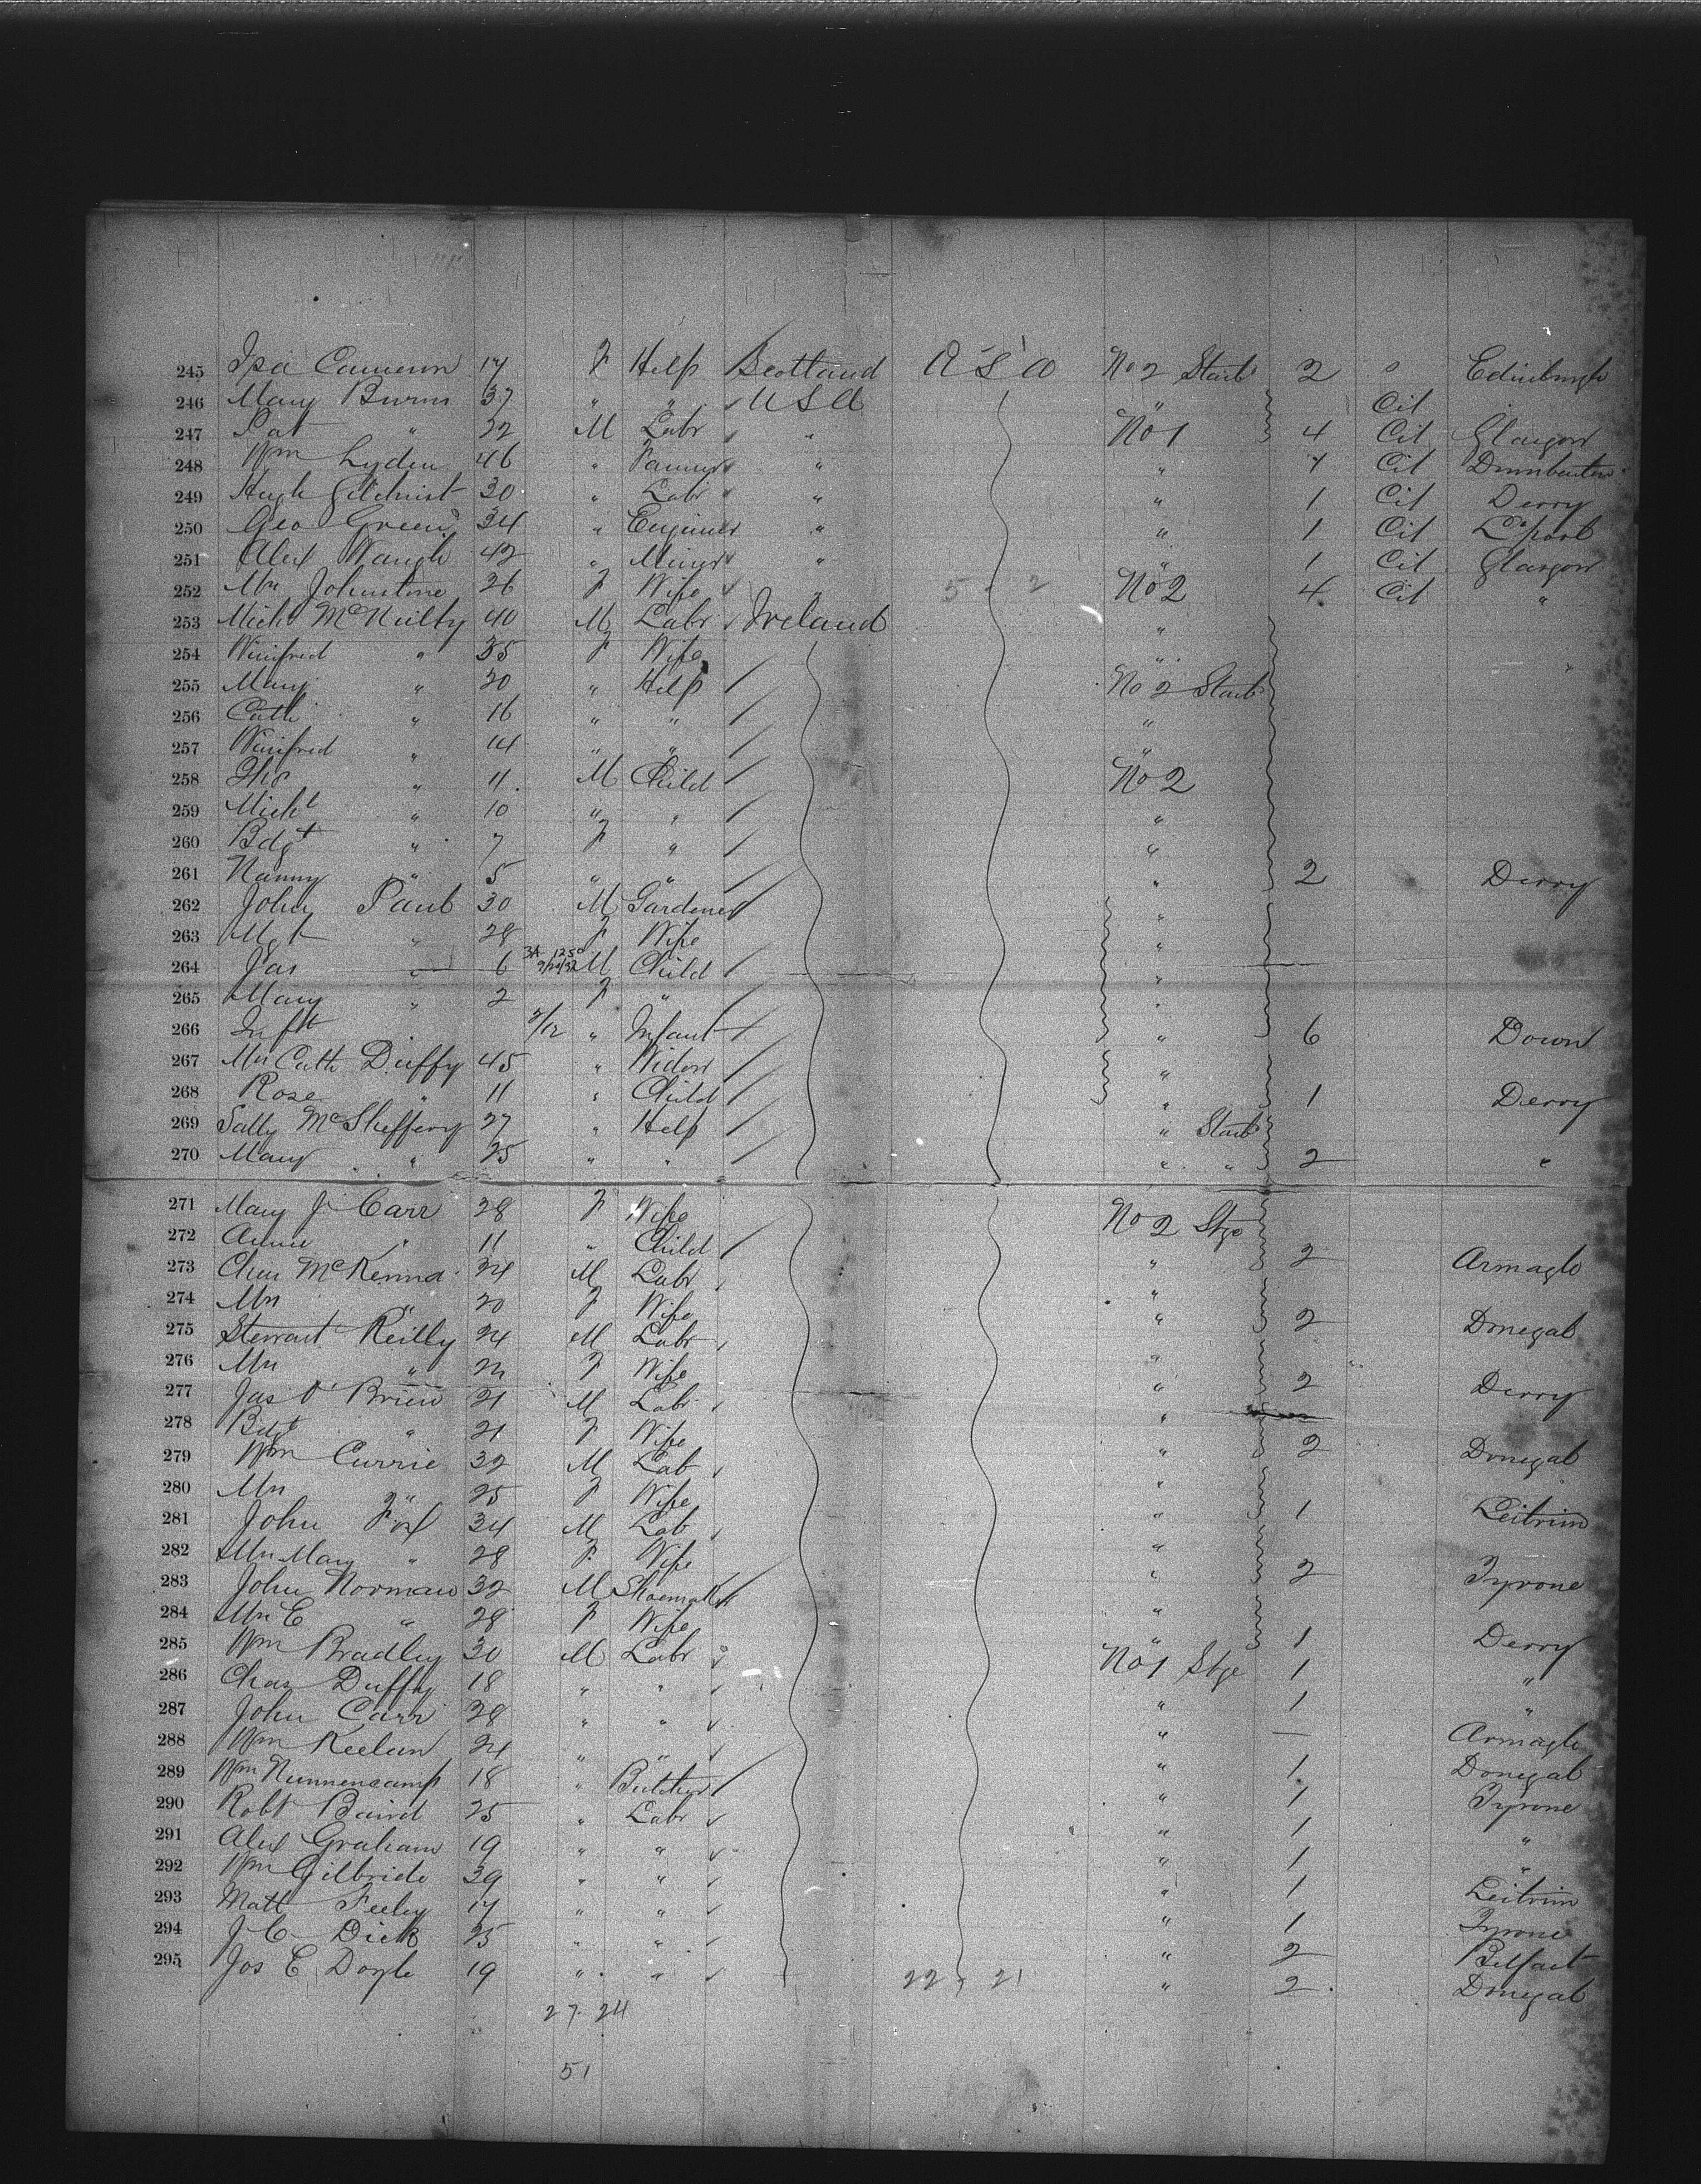 245 Isa Cameron 17 F Help Scotland U S A No 2 Starb 2 " Edinburgh
246 Mary Burns 37 " " USA " Cit
247 Pat " 32 M Labr " No 1 4 Cit Glasgow
248 Wm Lyden 46 " Farmer " " 4 Cit Dumbarton
249 Hugh Gilchrist 30 " Labr " " 1 Cit Derry
250 Geo Green 34 " Engineer " " 1 Cit L'pool
251 Alex Waugh 42 " Miner " " 1 Cit Glasgow
252 Mrs Johnstone 26 F Wife " 5 2 No 2 4 Cit "
253 Michl McNulty 40 M Labr Ireland "
254 Winifred " 35 F Wife " "
255 Mary " 20 " Help No 2 Starb
256 Cath " 16 " " "
257 Winifred " 14 " " "
258 Tho " 11 M Child No 2
259 Michl " 10 " " "
260 Bdgt " 7 F " "
261 Nanny " 5 " " " 2 Derry
262 John Paul 30 M Gardener "
263 Mgt " 28 F Wife "
264 Jas " 6 M Child "
265 Mary " 2 F " "
266 Inft " 2/12 " Infant " 6 Down
267 Mrs Cath Duffy 45 " Widow "
268 Rose " 11 " Child " 1 Derry
269 Sally McSheffery 27 " Help " Starb
270 Mary " 25 " " " " 2 "
271 Mary J Carr 28 F Wife No 2 Stge
272 Annie " 11 " Child " 2 Armagh
273 Chas McKenna 24 M Labr "
274 Mrs " 20 F Wife " 2 Donegal
275 Stewart Reilly 24 M Labr "
276 Mrs " 22 F Wife " 2 Derry
277 Jas O'Brien 21 M Labr "
278 Bdgt " 21 F Wife " 2 Donegal
279 Wm Currie 32 M Lab "
280 Mrs " 25 F Wife " 1 Leitrim
281 John Fox 34 M Lab "
282 Mrs Mary " 28 F Wife " 2 Tyrone
283 John Norman 32 M Shoemaker "
284 Mrs E " 28 F Wife " 1 Derry
285 Wm Bradley 30 M Labr No 1 Stge 1 "
286 Chas Duffy 18 " " " 1 "
287 John Carr 28 " " " — Armagh
288 Wm Keelan 24 " " " 1 Donegal
289 Wm Nunnencamp 18 " Butcher " 1 Tyrone
290 Robt Baird 25 " Labr " 1 "
291 Alex Graham 19 " " " 1 "
292 Wm Gilbride 39 " " " 1 Leitrim
293 Matt Feeley 17 " " " 1 Tyrone
294 J C Dick 25 " " " 2 Belfast
295 Jos E Doyle 19 " " 22 21 " 2 Donegal
27 24
51